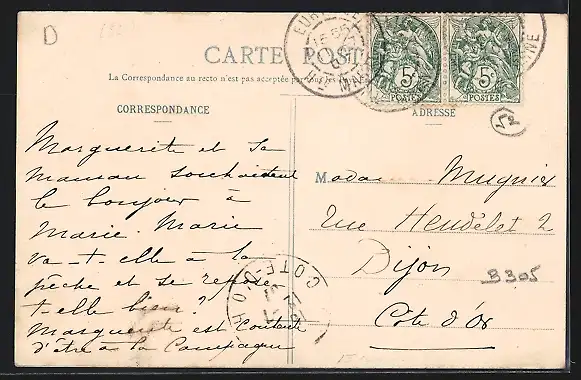 D
CARTE POST
La Correspondance au recto n'est pas acceptée par tous les
CORRESPONDANCE
ADRESSE
5c 5c
POSTES POSTES
Marguerite et sa
maman souhaitent
le bonjour à
Marie. Marie
va-t-elle à la
pêche et se repose
t-elle bien?
Marguerite est contente
d'être à la Campagne
Mada Mugnier
rue Heudelet 2
Dijon
Côte d'Or
B305
CÔTE-D'OR